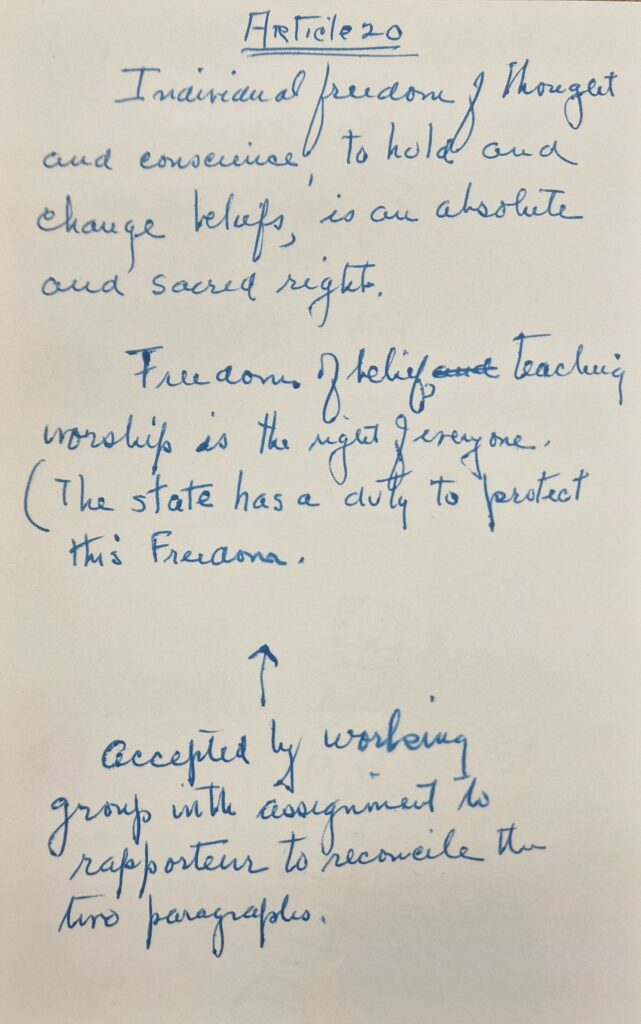 Article 20
Individual freedom of thought
and conscience, to hold and
change beliefs, is an absolute
and sacred right.
Freedom of belief, and teaching
worship is the right of everyone.
(The state has a duty to protect
this Freedom.
↑
accepted by working
group with assignment to
rapporteur to reconcile the
two paragraphs.